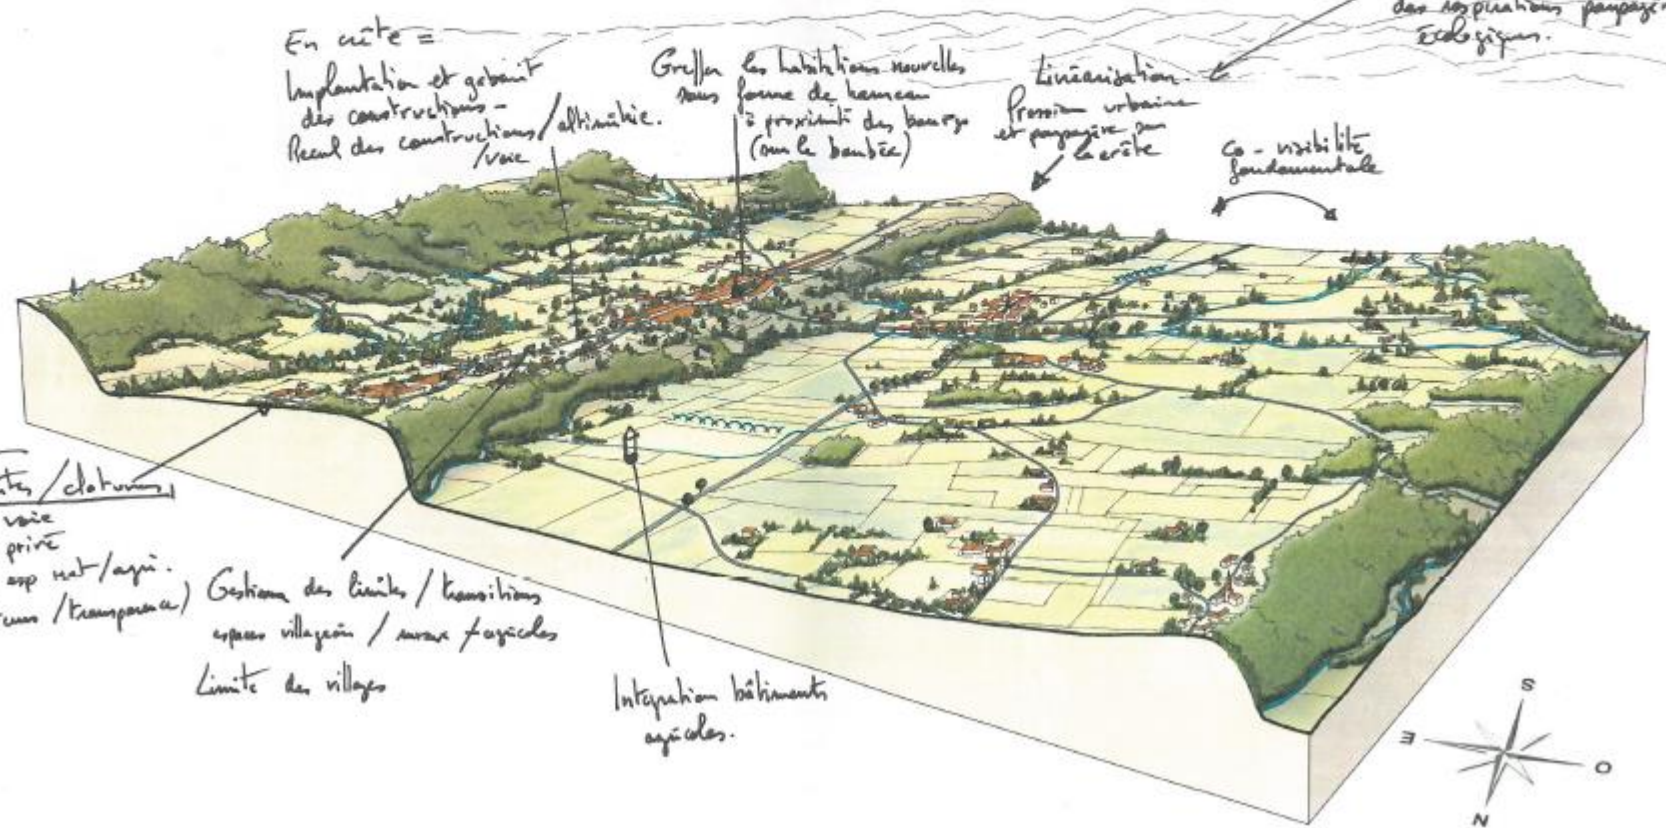 des respirations paysagè
écologiques.
En crête =
Implantation et gabarit
des constructions -
Recul des constructions / altimétrie.
/ voie
Greffer les habitations nouvelles
sous forme de hameau
à proximité des bourgs
(sur le banbée)
Linéarisation.
Pression urbaine
et paysagère sur
la crête
Co-visibilité
fondamentale
ites / clotures
voie
privé
esp nat / agri.
/ transparence)
Gestion des limites / transitions
espaces villageois / ruraux / agricoles
Limite des villages
Intégration bâtiments
agricoles.
S
E
O
N